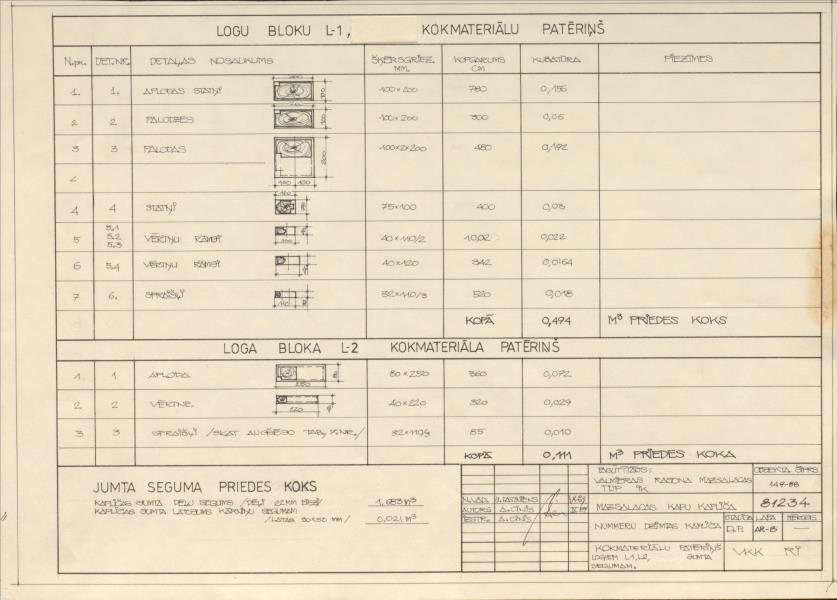 LOGU BLOKU L-1, KOKMATERIĀLU PATĒRIŅŠ
N.pk. DET.NR. DETAĻAS NOSAUKUMS ŠĶĒRSGRIEZ. MM. KOPGARUMS CM KUBATŪRA PIEZĪMES
1. 1. APLODAS STATŅI 100×200 780 0,156
2 2 PALODZES 100×200 300 0,06
3 3 PALODAS 100×2×200 480 0,192
4 4 STATŅI 75×100 400 0,03
5 5.1 5.2 5.3 VĒRTŅU RĀMJI 40×110/2 10,02 0,022
6 5.4 VĒRTŅU RĀMJI 40×120 342 0,0164
7 6. SPRAIŠĻI 32×110/3 520 0,018
KOPĀ 0,494 M³ PRIEDES KOKS
LOGA BLOKA L-2 KOKMATERIĀLA PATĒRIŅŠ
1 1 APLODA 80×250 360 0,072
2 2 VĒRTNE 40×220 320 0,029
3 3 SPRAIŠĻI /SKAT. AUGŠĒJO TAB. 85 0,010
KOPĀ 0,111 M³ PRIEDES KOKA
JUMTA SEGUMA PRIEDES KOKS
KAPLIČAS JUMTA DĒĻU SEGUMS /DĒĻI 22MM BIEZI/ 1,683 M³
KAPLIČAS JUMTA LATOJUMS KĀRNIŅU SEGUMAM
/LATAS 30×50 MM/ 0,021 M³
PASŪTĪTĀJS:
VALMIERAS RAJONA MAZSALACAS
OBJEKTA ŠIFRS
MAZSALACAS KAPU KAPLIČA
81234
NUMMERU DZIMTAS KAPLIČA
STADIJA LAPA
D.P. AR-8 —
AUTORS A. CINIS
A. CINIS
KOKMATERIĀLU PATĒRIŅŠ
LOGIEM L1, L2, JUMTA
SEGUMAM.
VKK RĪ